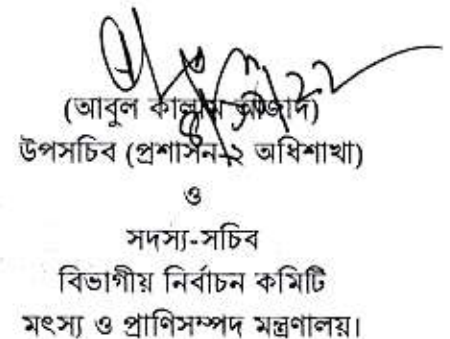 (আবুল কালাম আজাদ)
উপসচিব (প্রশাসন-২ অধিশাখা)
ও
সদস্য-সচিব
বিভাগীয় নির্বাচন কমিটি
মৎস্য ও প্রাণিসম্পদ মন্ত্রণালয়।